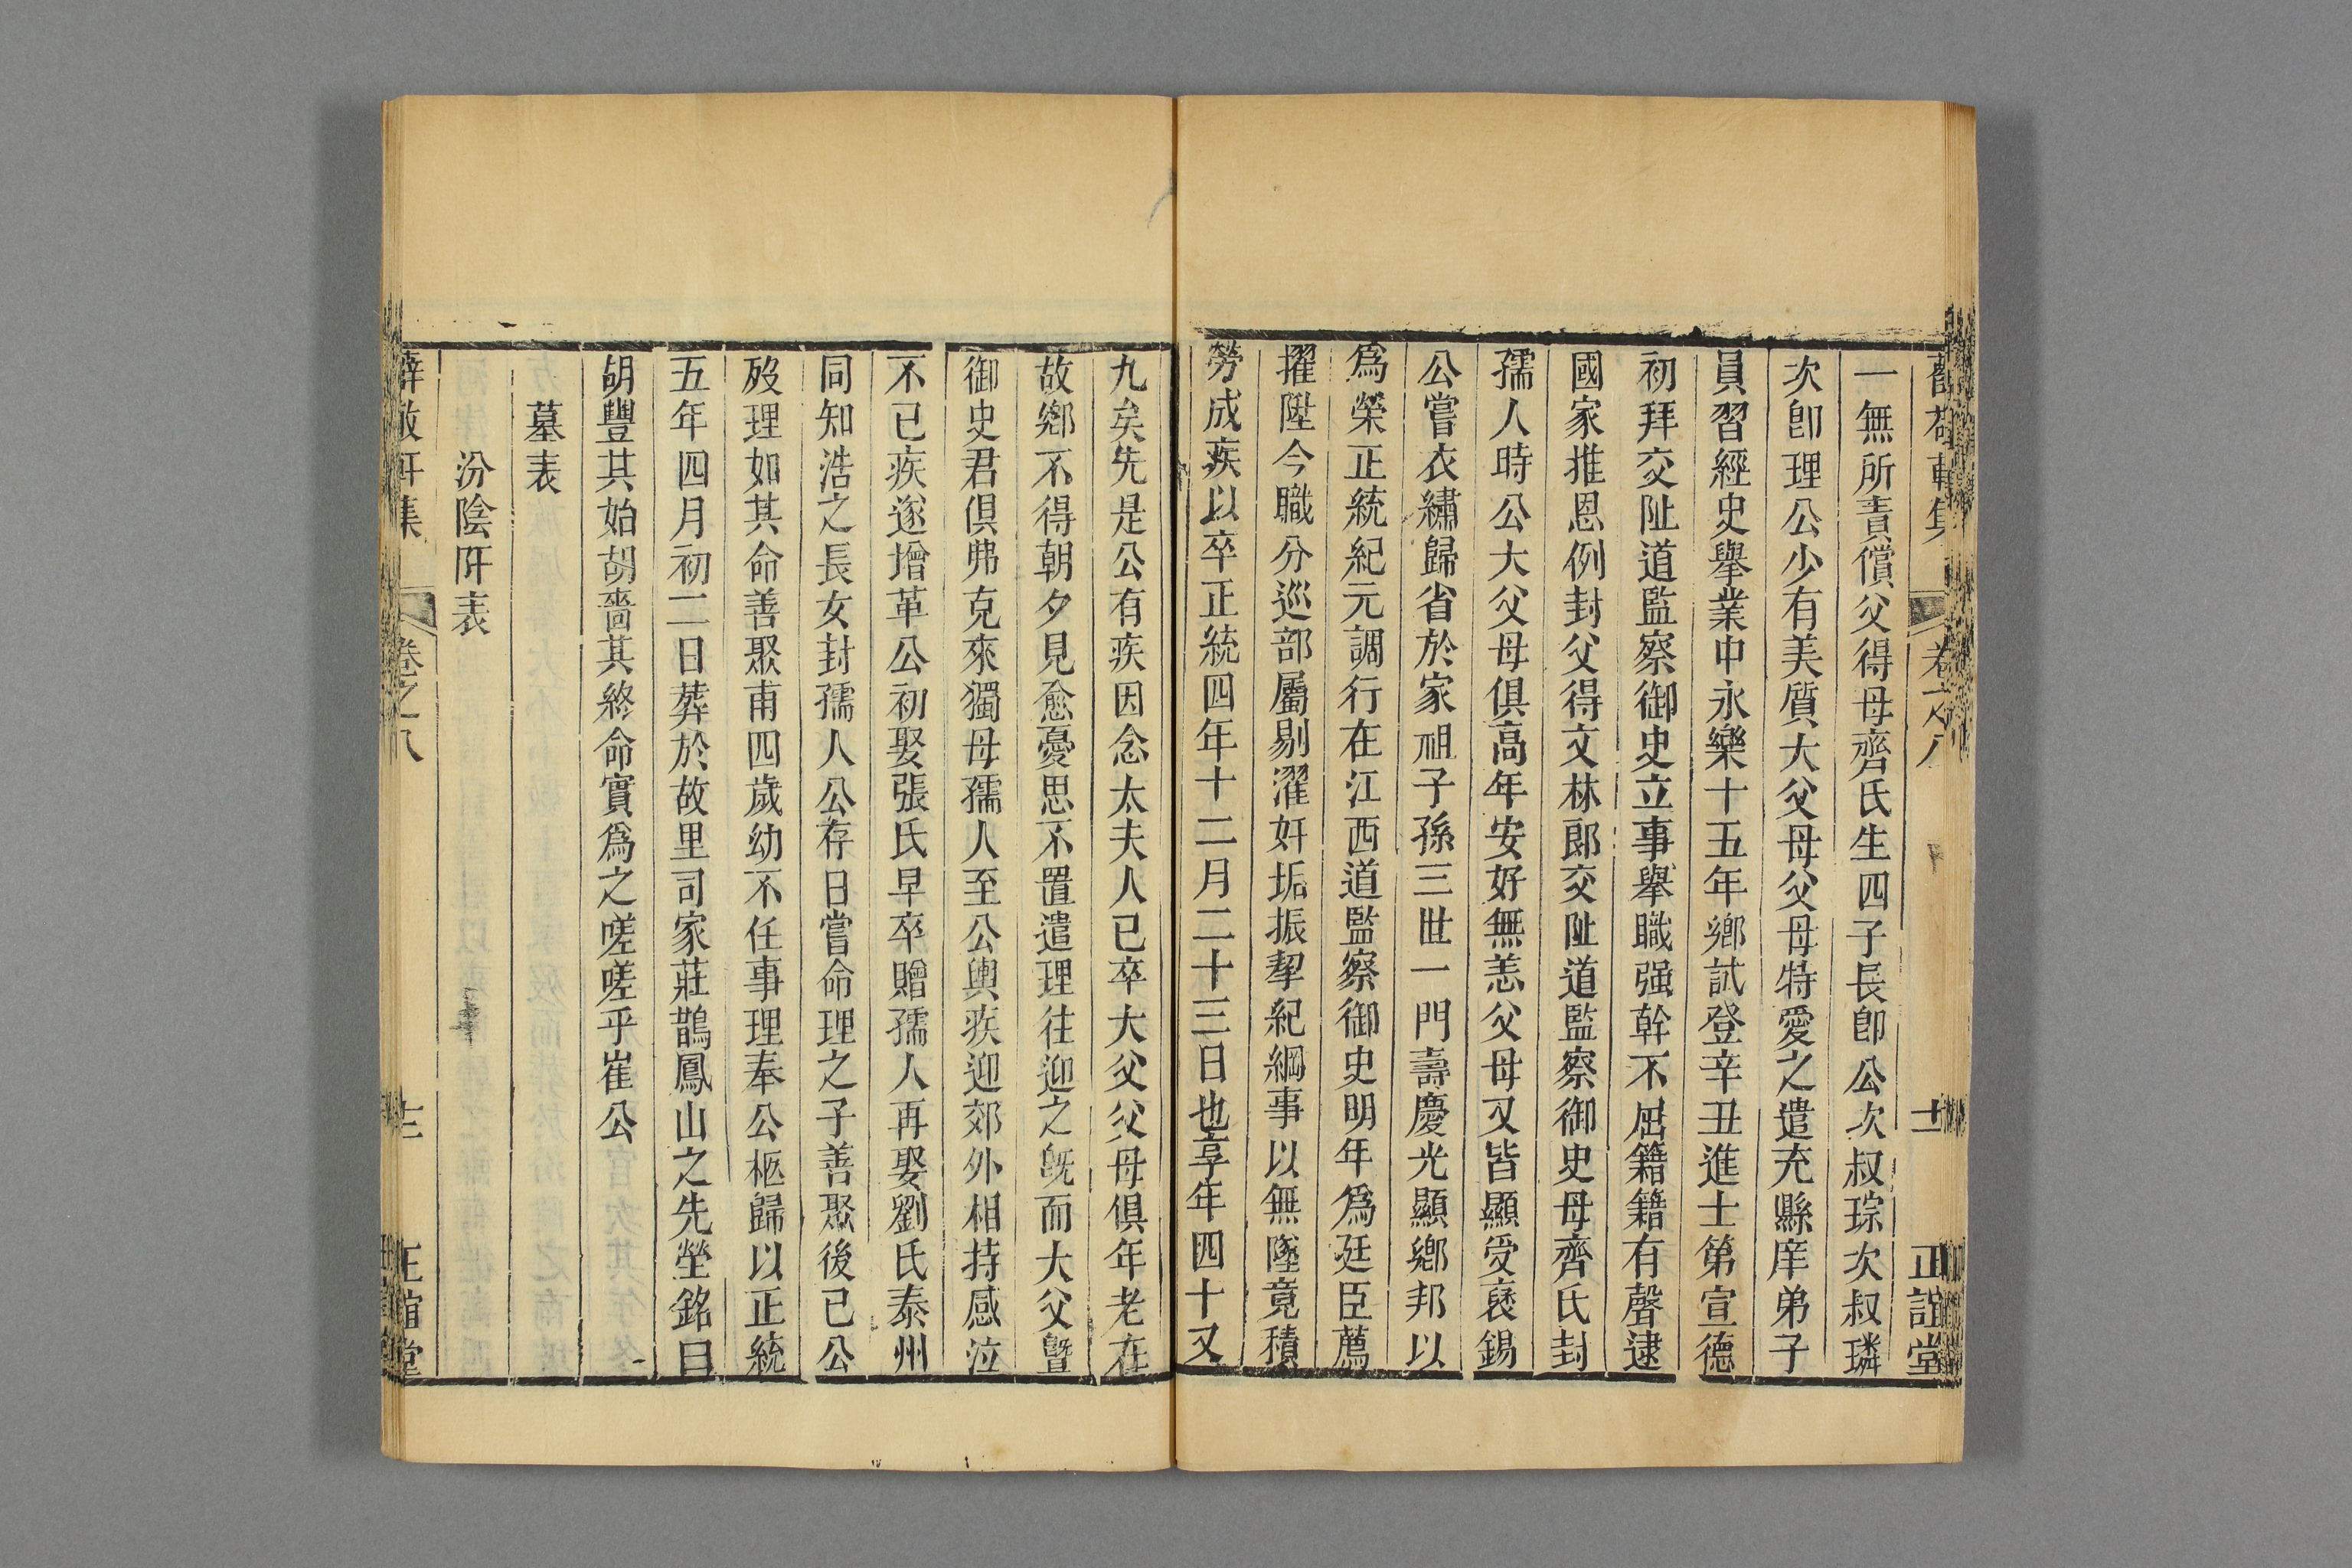 薛敬軒集 卷之八 十一 正誼堂
一無所責償父得母齊氏生四子長卽公次叔琮次叔璘
次卽理公少有美質大父母父母特愛之遣充縣庠弟子
員習經史舉業中永樂十五年鄉試登辛丑進士第宣德
初拜交阯道監察御史立事舉職强幹不屈籍籍有聲逮
國家推恩例封父得文林郎交阯道監察御史母齊氏封
孺人時公大父母俱高年安好無恙父母又皆顯受褒錫
公嘗衣繡歸省於家祖子孫三世一門壽慶光顯鄉邦以
爲榮正統紀元調行在江西道監察御史明年爲廷臣薦
擢陞今職分巡部屬剔濯奸垢振挈紀綱事以無墜竟積
勞成疾以卒正統四年十二月二十三日也享年四十又
九矣先是公有疾因念太夫人已卒大父父母俱年老在
故鄉不得朝夕見愈憂思不置遣理往迎之旣而大父曁
御史君俱弗克來獨母孺人至公輿疾迎郊外相持感泣
不已疾遂增革公初娶張氏早卒贈孺人再娶劉氏泰州
同知浩之長女封孺人公存日嘗命理之子善聚後已公
歿理如其命善聚甫四歲幼不任事理奉公柩歸以正統
五年四月初二日葬於故里司家莊鵲鳳山之先塋銘曰
胡豐其始胡嗇其終命實爲之嗟嗟乎崔公
墓表
汾陰阡表
薛敬軒集 卷之八 十二 正誼堂